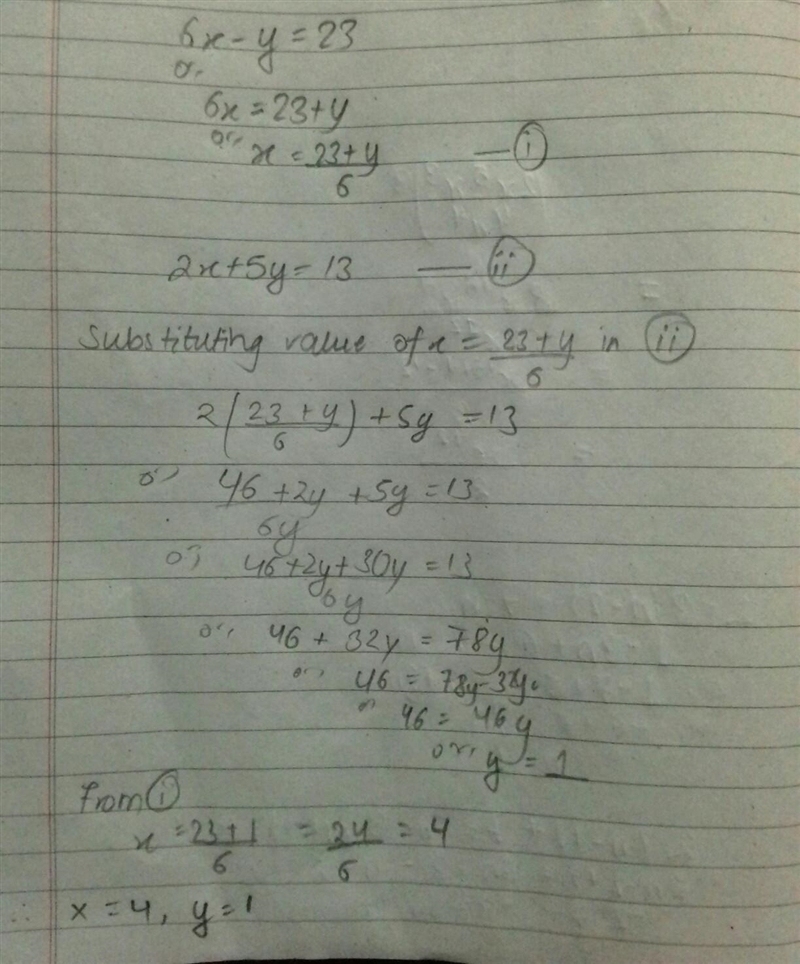 6x - y = 23
or
6x = 23+y
or, x = 23+y — (i)
6
2x+5y = 13 — (ii)
Substituting value of x = 23+y in (ii)
6
2(23+y) + 5y = 13
6
or, 46 + 2y + 5y = 13
6y
or, 46+2y+30y = 13
6y
or, 46 + 32y = 78y
or, 46 = 78y-32y
or 46 = 46y
or, y = 1
From (i)
x = 23+1 = 24 = 4
6 6
∴ x = 4, y = 1